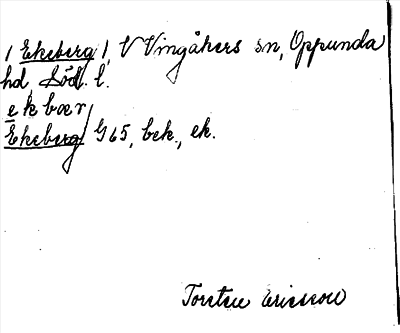 / Ekeberg /, V Vingåkers sn, Oppunda
hd, Södl. l.
ekbær/
Ekeberg G65, bek., ek.
Torsten Ericsson